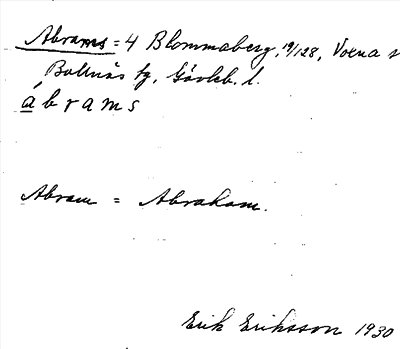 Abrams = 4 Blommaberg, 19/128, Voxna s
Bollnäs tg, Gävleb. l.
á b r a m s
Abram = Abraham.
Erik Eriksson 1930